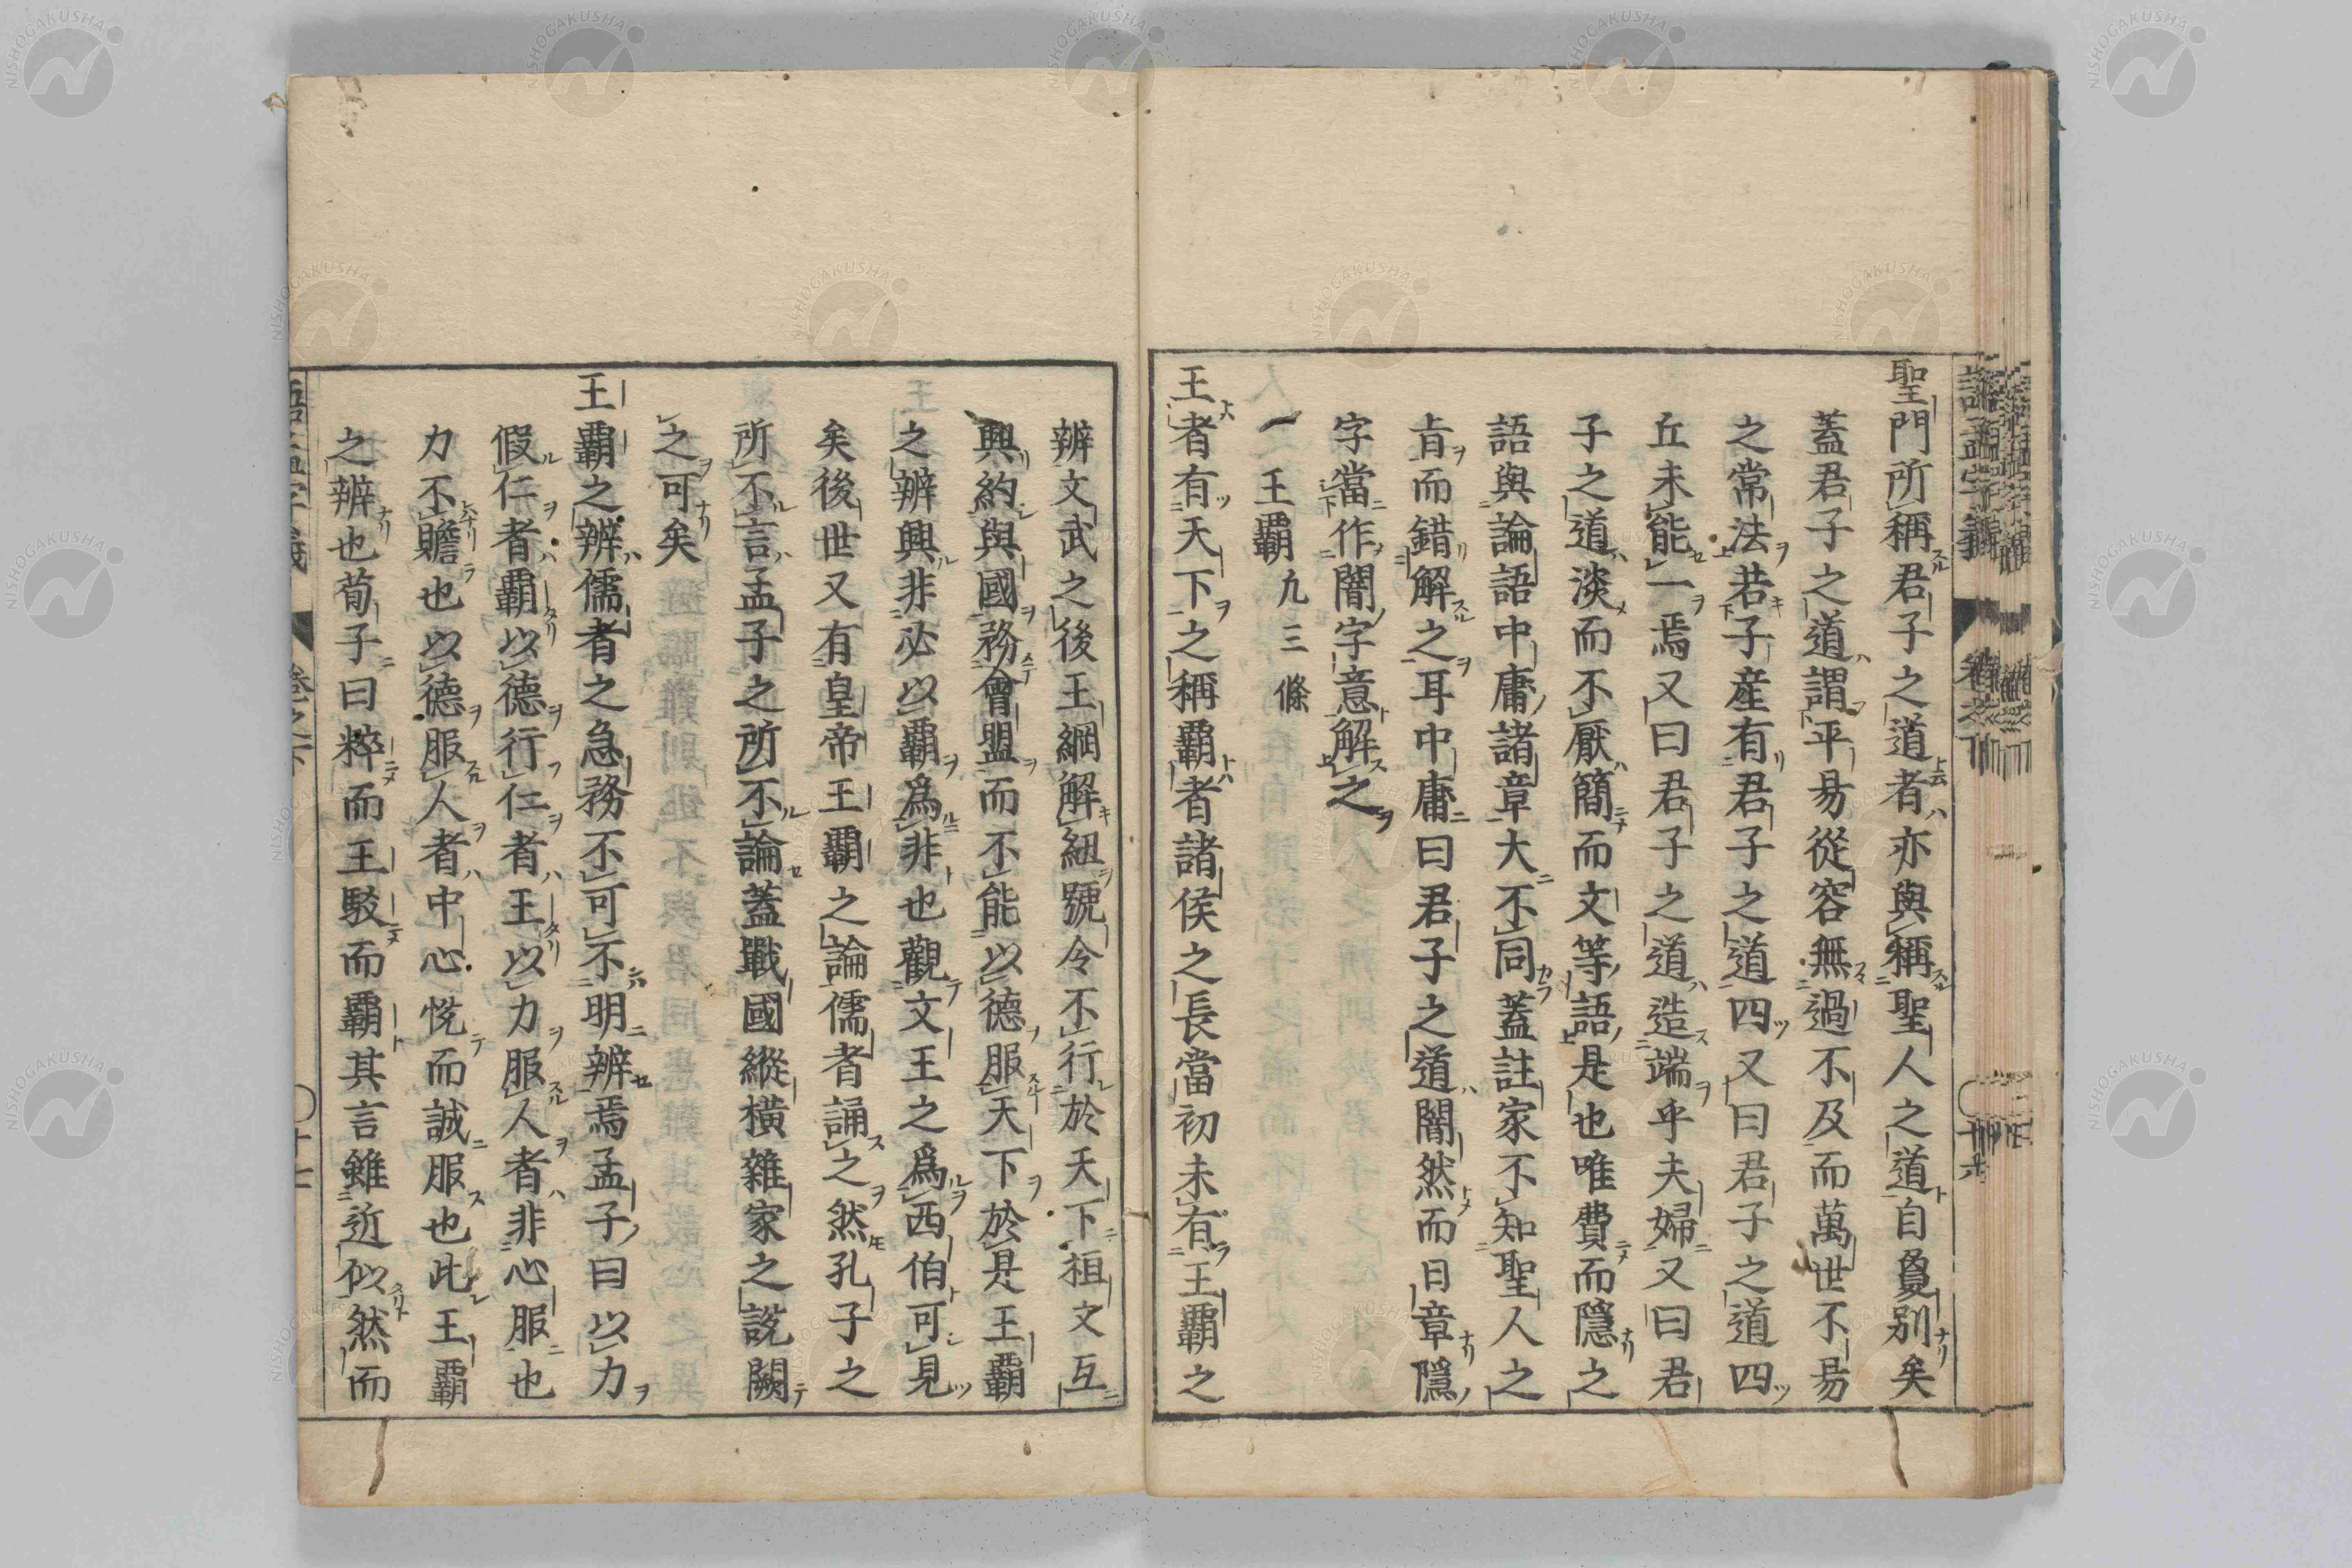 聖門所稱君子之道者亦與稱聖人之道自敻別矣
蓋君子之道謂平易從容無過不及而萬世不易
之常法若子產有君子之道四又曰君子之道四
丘未能一焉又曰君子之道造端乎夫婦又曰君
子之道淡而不厭簡而文等語是也唯費而隱之
語與論語中庸諸章大不同蓋註家不知聖人之
旨而錯解之耳中庸曰君子之道闇然而日章隱
字當作闇字意解之
一王霸九三條
王者有天下之稱霸者諸侯之長當初未有王霸之
辨文武之後王綱解紐號令不行於天下桓文互
興約與國務會盟而不能以德服天下於是王霸
之辨興非必以霸爲非也觀文王之爲西伯可見
矣後世又有皇帝王霸之論儒者誦之然孔子之
所不言孟子之所不論蓋戰國縱橫雜家之說闕
之可矣
王霸之辨儒者之急務不可不明辨焉孟子曰以力
假仁者霸以德行仁者王以力服人者非心服也
力不贍也以德服人者中心悅而誠服也此王霸
之辨也荀子曰粹而王駁而霸其言雖近似然而